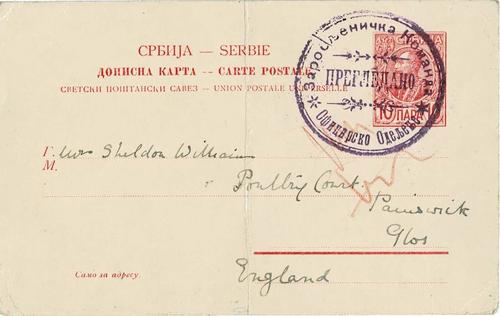 СРБИЈА — SERBIE
ДОПИСНА КАРТА — CARTE POSTALE
СВЕТСКИ ПОШТАНСКИ САВЕЗ — UNION POSTALE UNIVERSELLE
Заробљеничка Команда
ПРЕГЛЕДАНО
Официрско Одељење
10 ПАРА
Г. Mrs Sheldon Williams
М.
Poultry Court
Painswick
Glos
England
Само за адресу.